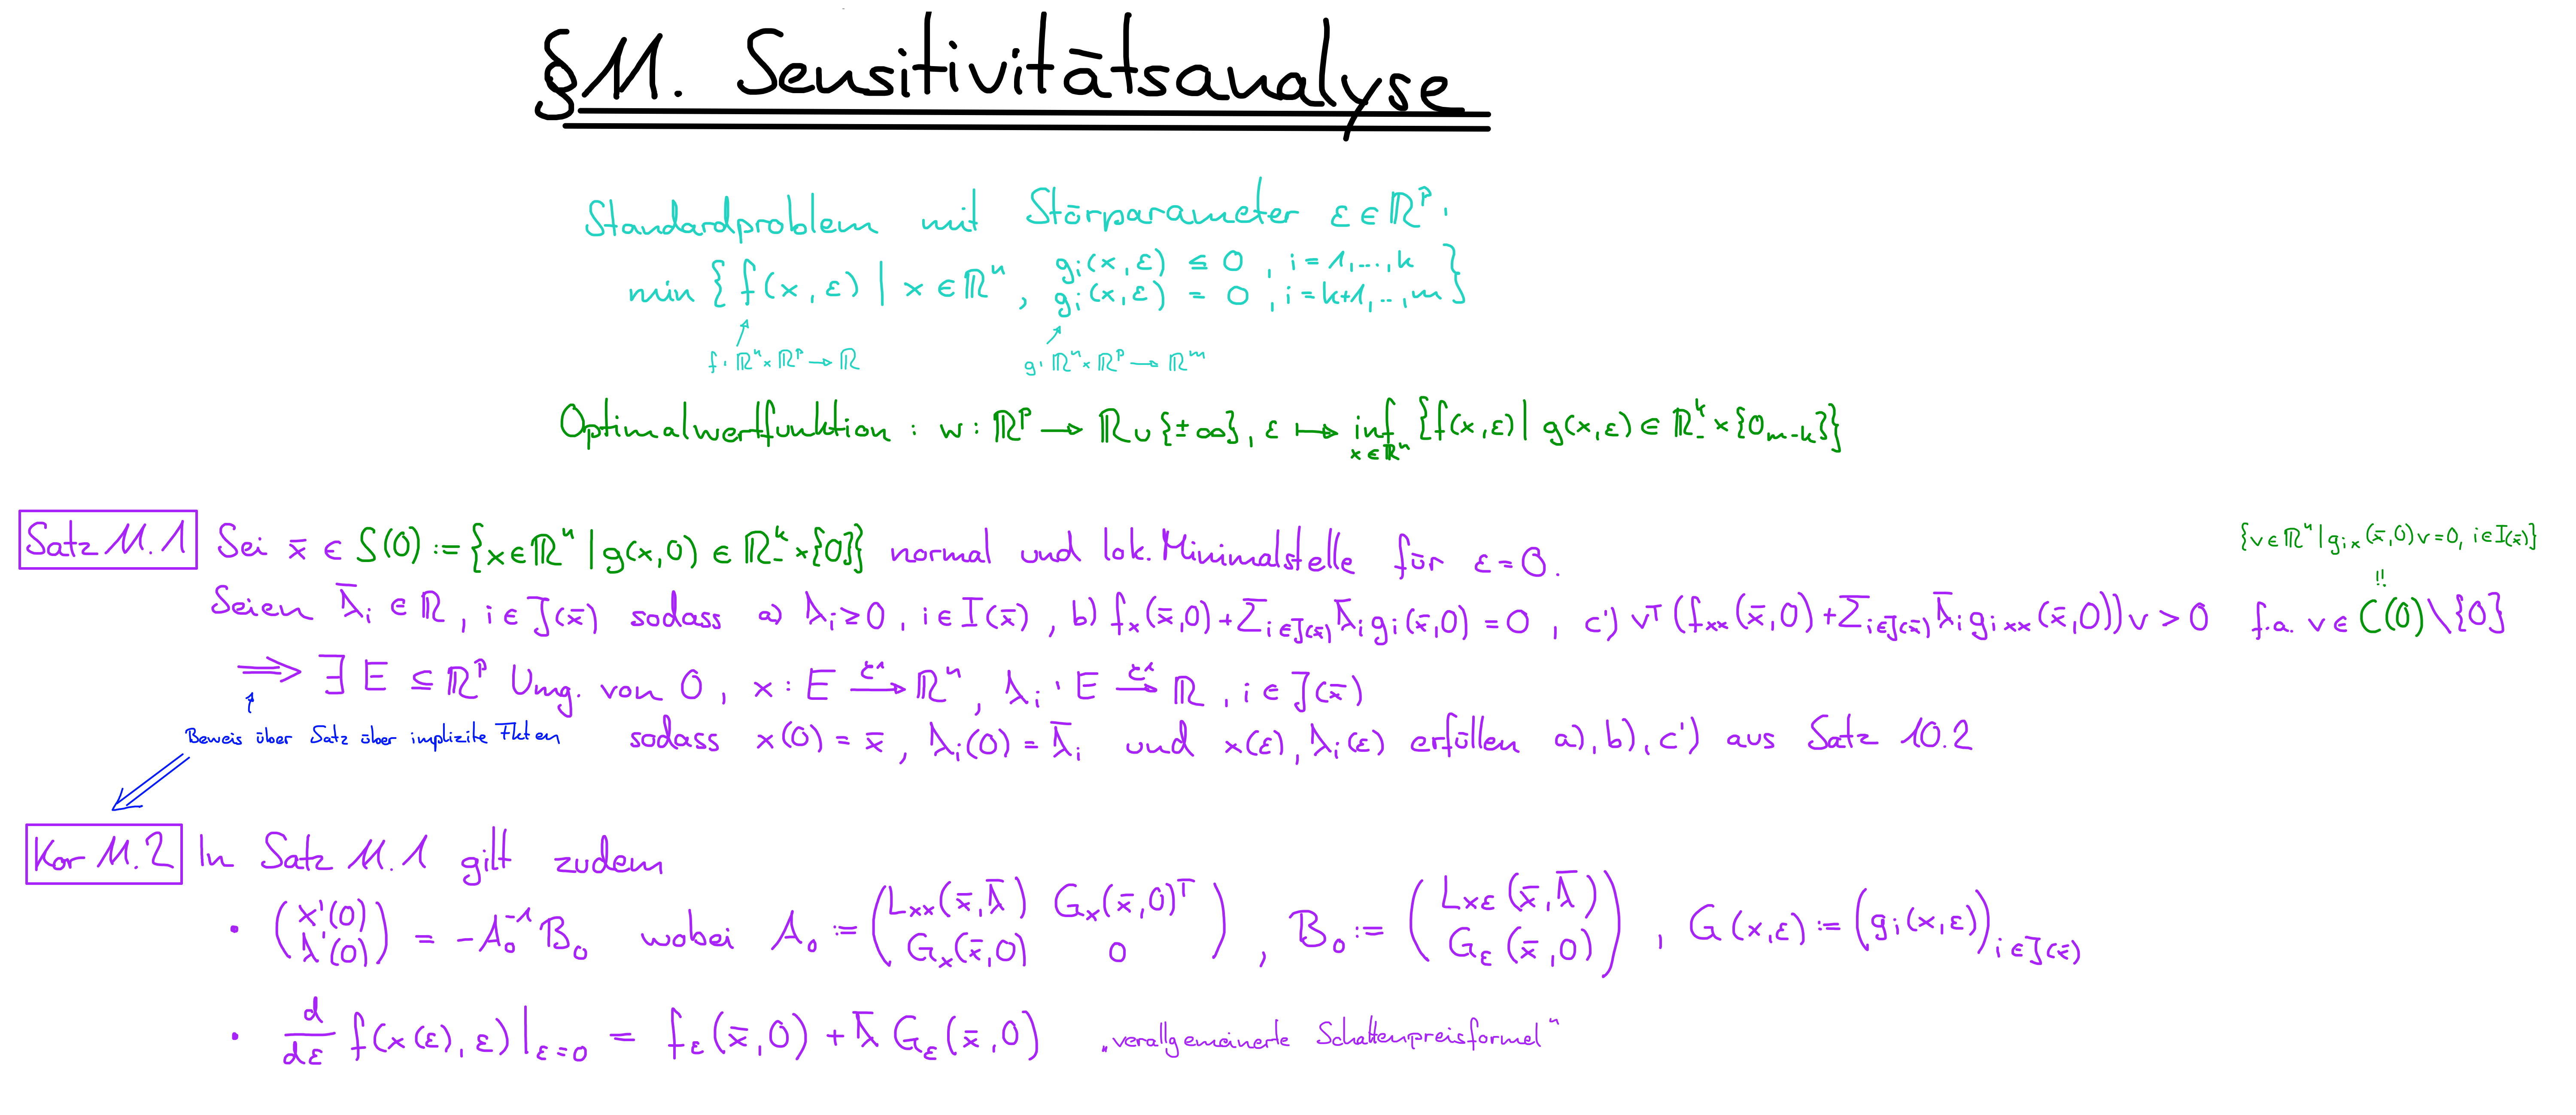 §11. Sensitivitätsanalyse
Standardproblem mit Störparameter ε ∈ ℝᵖ:
min { f(x,ε) | x ∈ ℝⁿ, gᵢ(x,ε) ≤ 0, i = 1,...,k
gᵢ(x,ε) = 0, i = k+1,..,m }
f: ℝⁿ × ℝᵖ → ℝ g: ℝⁿ × ℝᵖ → ℝᵐ
Optimalwertfunktion: w: ℝᵖ → ℝ ∪ {±∞}, ε ↦ inf_{x∈ℝⁿ} {f(x,ε) | g(x,ε) ∈ ℝ₋ᵏ × {0_{m-k}}}
Satz 11.1 Sei x̄ ∈ S(0) := {x ∈ ℝⁿ | g(x,0) ∈ ℝ₋ᵏ × {0}} normal und lok. Minimalstelle für ε = 0.
{v ∈ ℝⁿ | g_{ix}(x̄,0)v = 0, i ∈ I(x̄)}
!!
Seien λ̄ᵢ ∈ ℝ, i ∈ J(x̄) sodass a) λᵢ ≥ 0, i ∈ I(x̄), b) fₓ(x̄,0) + Σ_{i∈J(x̄)} λ̄ᵢ gᵢ(x̄,0) = 0, c') vᵀ(fₓₓ(x̄,0) + Σ_{i∈J(x̄)} λ̄ᵢ g_{ixx}(x̄,0))v > 0 f.a. v ∈ C(0)\{0}
⟹ ∃ E ⊆ ℝᵖ Umg. von 0, x: E →^{C¹} ℝⁿ, λᵢ: E →^{C¹} ℝ, i ∈ J(x̄)
Beweis über Satz über implizite Fkten
sodass x(0) = x̄, λᵢ(0) = λ̄ᵢ und x(ε), λᵢ(ε) erfüllen a), b), c') aus Satz 10.2
Kor 11.2 In Satz 11.1 gilt zudem
• (x'(0) λ'(0)) = -A₀⁻¹B₀ wobei A₀ := (Lₓₓ(x̄,λ̄) Gₓ(x̄,0)ᵀ Gₓ(x̄,0) 0), B₀ := (L_{xε}(x̄,λ̄) G_ε(x̄,0)), G(x,ε) := (gᵢ(x,ε))_{i∈J(x̄)}
• d/dε f(x(ε),ε)|_{ε=0} = f_ε(x̄,0) + λ̄ G_ε(x̄,0) „verallgemeinerte Schattenpreisformel"